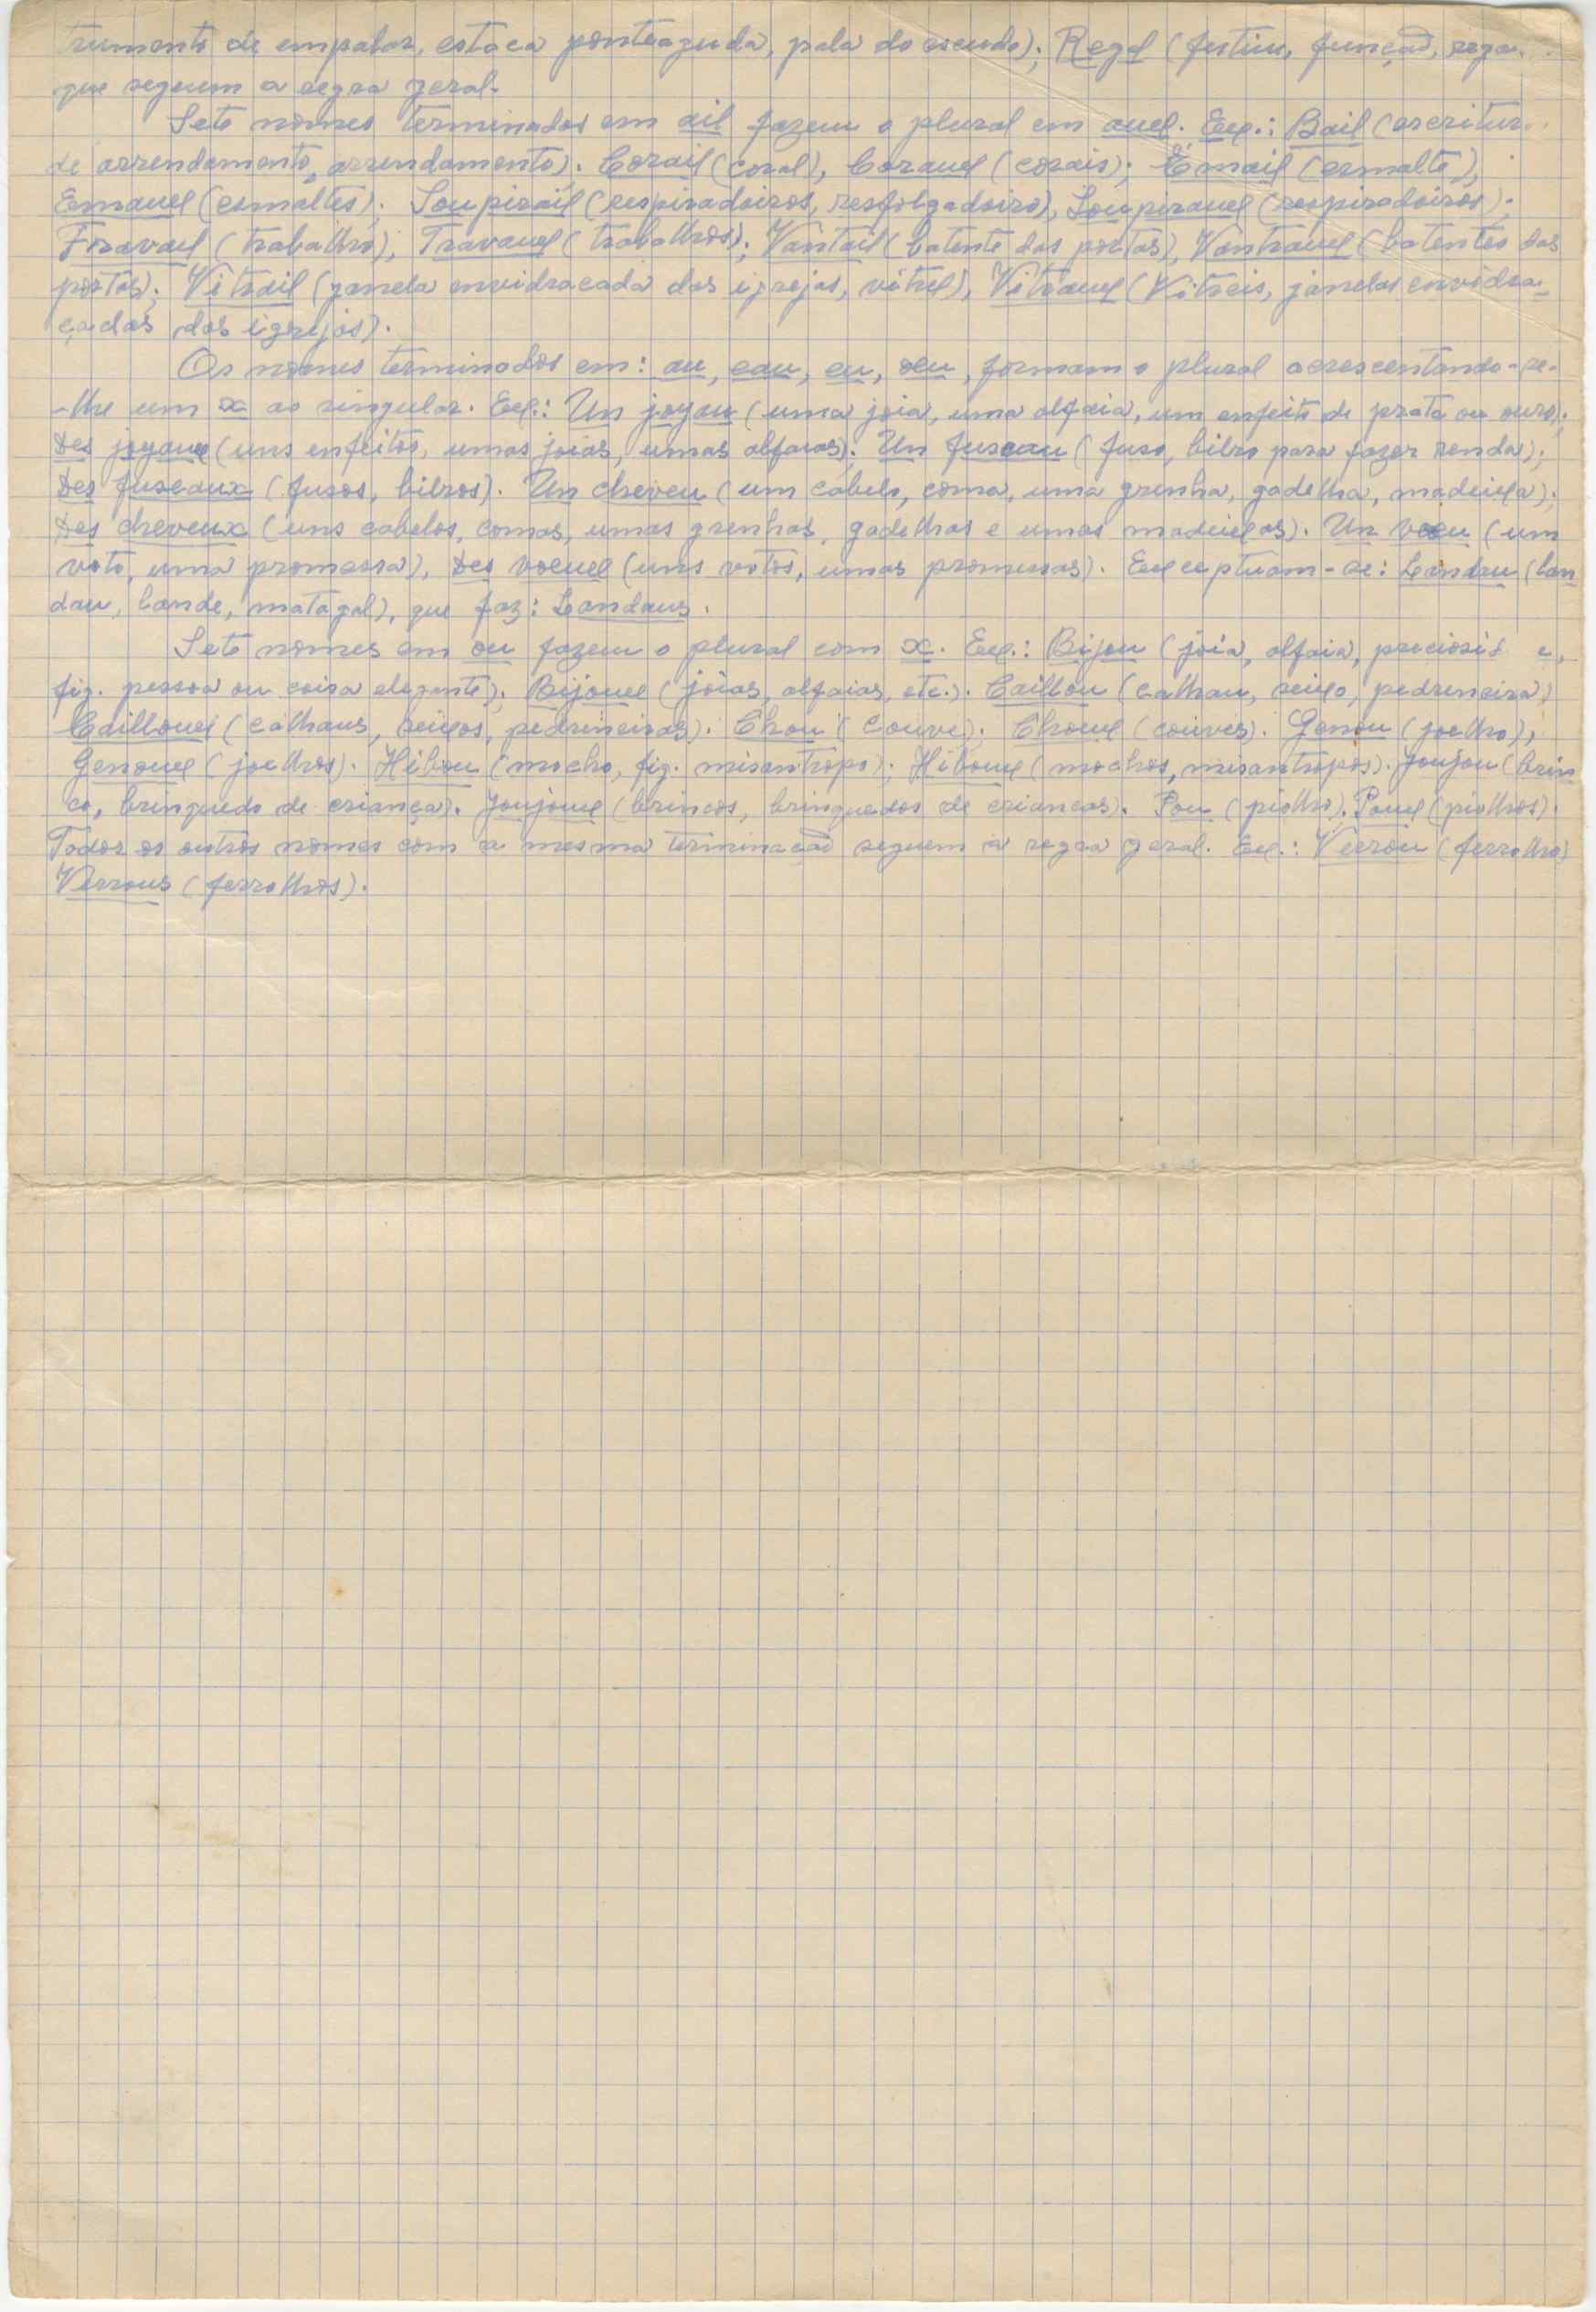 trumento de empalar, estaca ponteaguda, pala do escudo); Regal (festim, função, rega
que seguem a regra geral.
Sete nomes terminados em ail fazem o plural em aux. Ex.: Bail (escritur
de arrendamento, arrendamento); Corail (coral), Coraux (corais); Émail (esmalte),
Emaux (esmaltes); Soupirail (respiradoiros, resfolgadoiro), Soupiraux (respiradoiros);
Travail (trabalho), Travaux (trabalhos); Vantail (batente das portas), Vantraux (batentes das
portas); Vitrail (janela envidraçada das igrejas, vitral), Vitraux (Vitrais, janelas envidra-
çadas das igrejas).
Os nomes terminados em: au, eau, eu, oeu, formam o plural acrescentando-se-
-lhe um x ao singular. Ex.: Un joyau (uma joia, uma alfaia, um enfeite de prata ou ouro);
Des joyaux (uns enfeites, umas joias, umas alfaias). Un fuseau (fuso, bilro para fazer renda);
Des fuseaux (fusos, bilros). Un cheveu (um cabelo, coma, uma grenha, gadelha, madeixa);
Des cheveux (uns cabelos, comas, umas grenhas, gadelhas e umas madeixas). Un voeu (um
voto, uma promessa), Des voeux (uns votos, umas promessas). Exceptuam-se: Landau (lan
dau, lande, matagal), que faz: Landaus.
Sete nomes em ou fazem o plural com x. Ex.: Bijou (joia, alfaia, preciosid e,
fig. pessoa ou coisa elegante); Bijoux (joias, alfaias, etc.). Caillou (calhau, seixo, pedreneira)
Cailloux (calhaus, seixos, pedreneiras). Chou (couve); Choux (couves). Genou (joelho),
Genoux (joelhos). Hibou (mocho, fig. misantropo); Hiboux (mochos, misantropos). Joujou (brin
co, brinquedo de criança). Joujoux (brincos, brinquedos de crianças). Pou (piolho). Poux (piolhos).
Todos os outros nomes com a mesma terminação seguem a regra geral. Ex.: Verrou (ferrolho)
Verrous (ferrolhos).